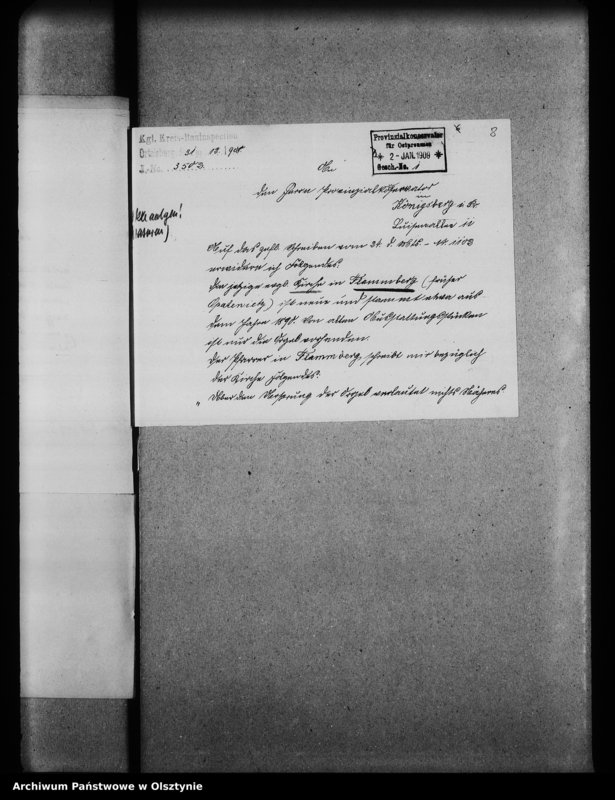 Kgl. Kreis-Bauinspection
Ortelsburg, 31 12. 1908
J.-No. 3503
Provinzialkonservator
für Ostpreussen
2 - JAN. 1909
Gesch.-No. 1
8
An
den Herrn Provinzialkonservator
in
Königsberg i. Pr
Luisenallee 11
Auf das gefl. Schreiben vom 24. d. Mts. - Nr. 1103
erwidere ich Folgendes.
Die jetzige evgl. Kirche in Flammberg (früher
Opalenietz) ist neu und stammt etwa aus
dem Jahre 189. Von alten Ausstattungsstücken
ist nur die Orgel vorhanden.
Der Pfarrer in Flammberg schreibt mir bezüglich
der Kirche Folgendes:
„ Über den Ursprung der Orgel verlautet nichts Näheres
Archiwum Państwowe w Olsztynie